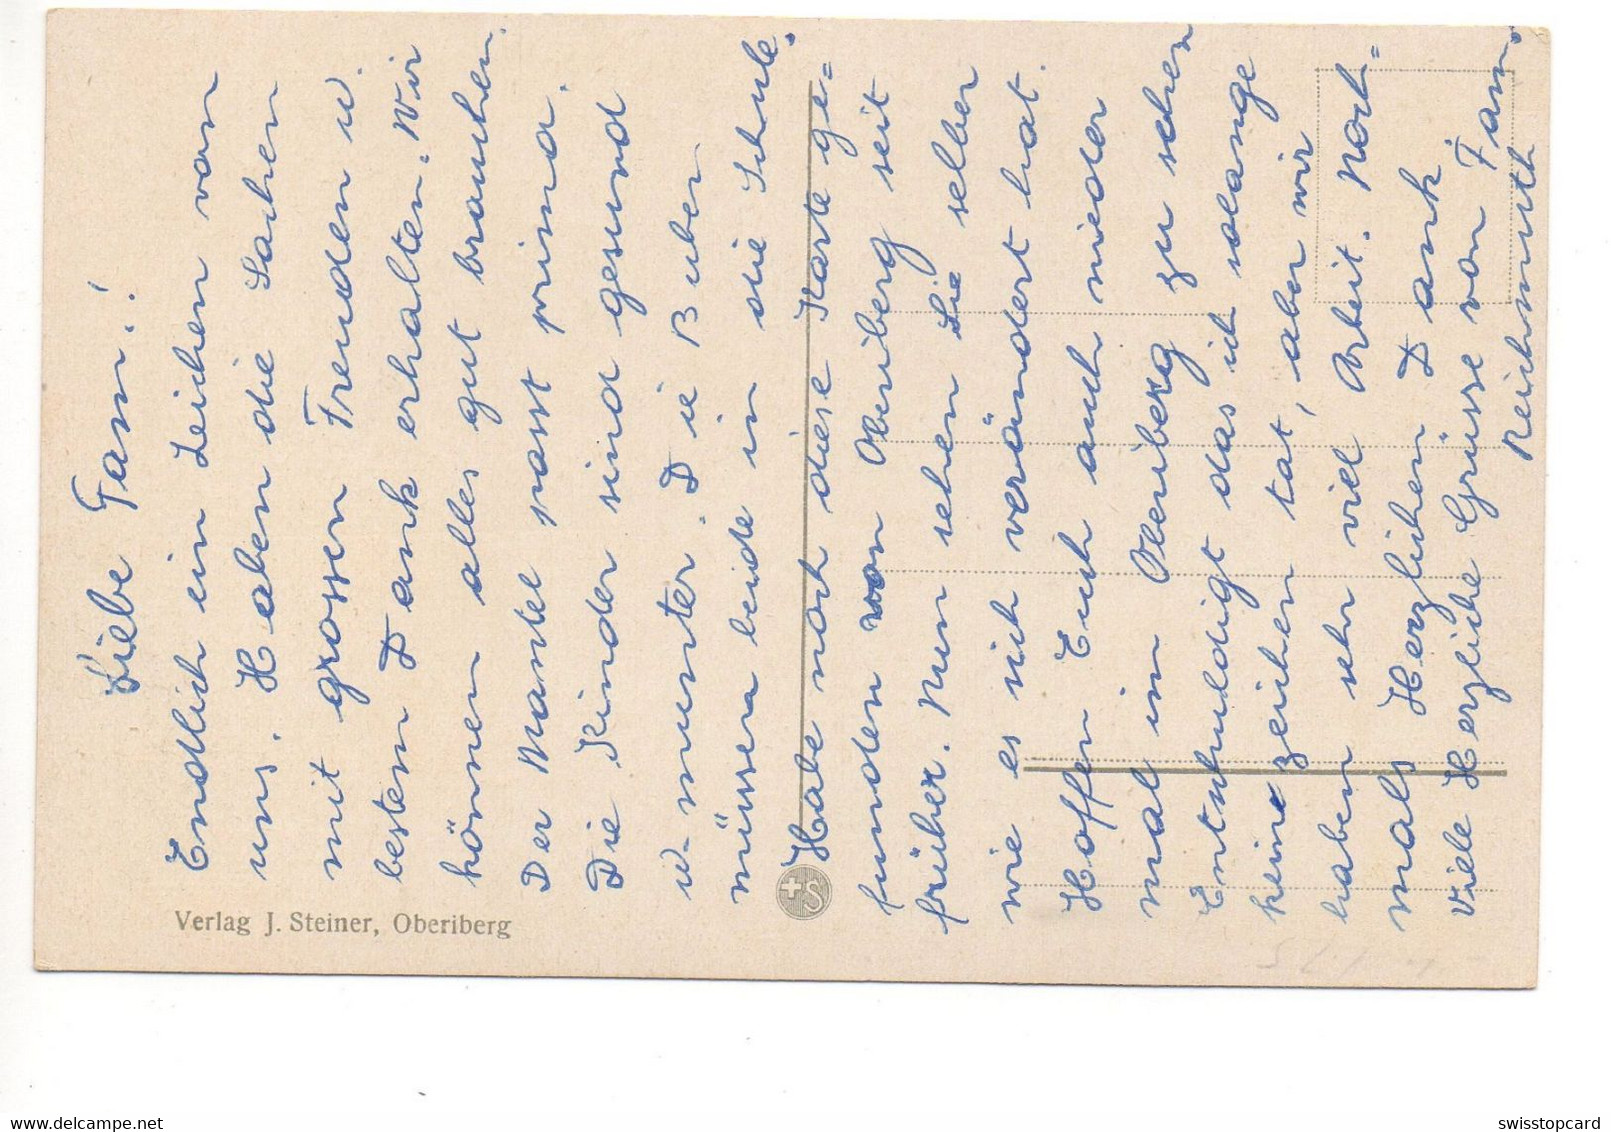 Liebe Fam.!
Endlich ein Zeichen von
uns. Haben die Sachen
mit grossen Freuden u.
bestem Dank erhalten. Wir
können alles gut brauchen.
Der Mantel passt prima.
Die Kinder sind gesund
u. munter. Die Buben
müssen beide in die Schule.
Habe noch diese Karte ge=
funden von Oberiberg seit
früher. Nun sehen Sie selber
wie es sich verändert hat.
Hoffen Euch auch wieder
mal im Oberiberg zu sehen
Entschuldigt das ich solange
keine zeichen tat, aber wir
haben sehr viel Arbeit. Noch=
mals Herzlichen Dank
Viele Herzliche Grüsse von Fam.
Reichmuth
Verlag J. Steiner, Oberiberg
+S
swisstopcard